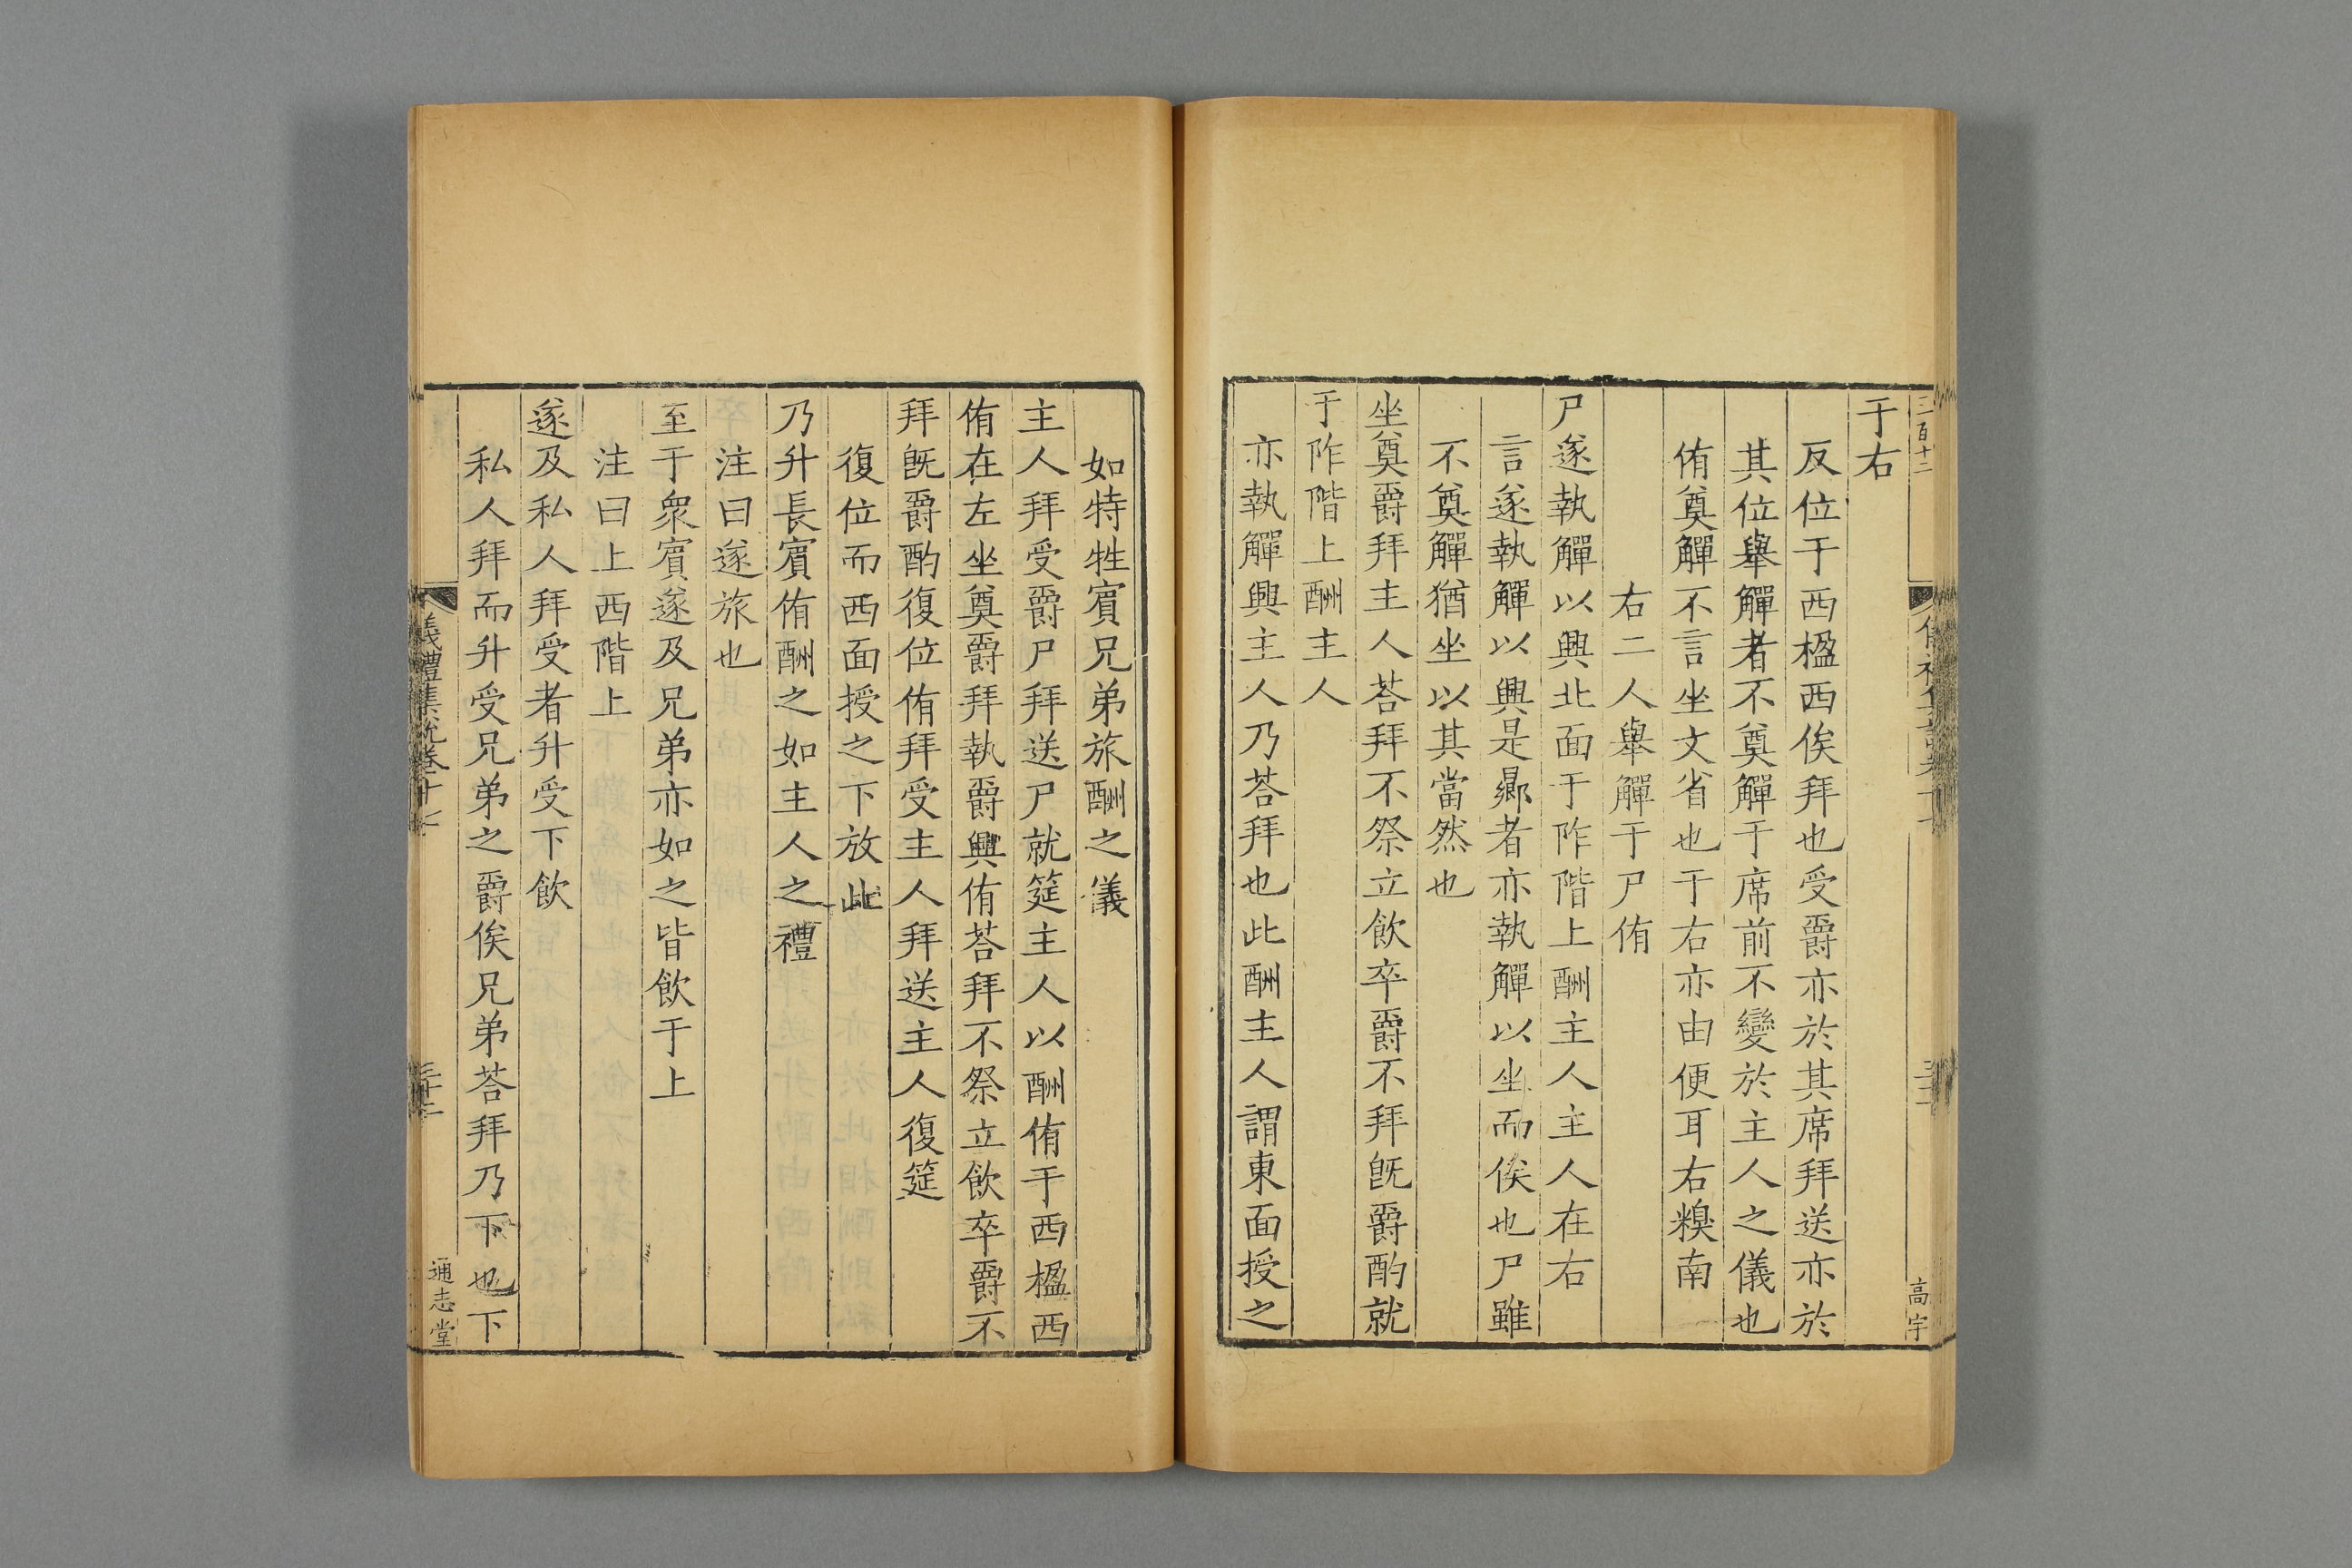 于右
反位于西楹西俟拜也受爵亦於其席拜送亦於
其位舉觶者不奠觶于席前不變於主人之儀也
侑奠觶不言坐文省也于右亦由便耳右糗南
右二人舉觶于尸侑
尸遂執觶以興北面于阼階上酬主人主人在右
言遂執觶以興是鄉者亦執觶以坐而俟也尸雖
不奠觶猶坐以其當然也
坐奠爵拜主人荅拜不祭立飲卒爵不拜旣爵酌就
于阼階上酬主人
亦執觶興主人乃荅拜也此酬主人謂東面授之
高宇
如特牲賓兄弟旅酬之儀
主人拜受爵尸拜送尸就筵主人以酬侑于西楹西
侑在左坐奠爵拜執爵興侑荅拜不祭立飲卒爵不
拜旣爵酌復位侑拜受主人拜送主人復筵
復位而西面授之下放此
乃升長賓侑酬之如主人之禮
注曰遂旅也
至于衆賓遂及兄弟亦如之皆飲于上
注曰上西階上
遂及私人拜受者升受下飲
私人拜而升受兄弟之爵俟兄弟荅拜乃下也下
儀禮集說卷十七
三十二
通志堂